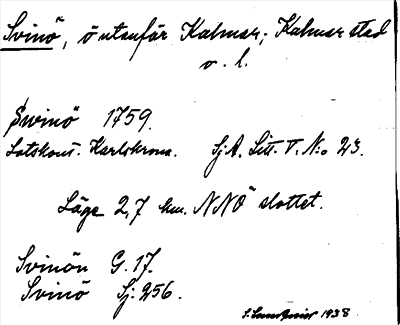 Svinö, ö utanför Kalmar; Kalmar stad
o. l.
Swinö 1759.
Lotskont. Karlskrona. SjA. Litt. V. N:o 23.
Läge 2,7 km. NNÖ slottet.
Svinön G. 17.
Svinö Sj: 256.
1938